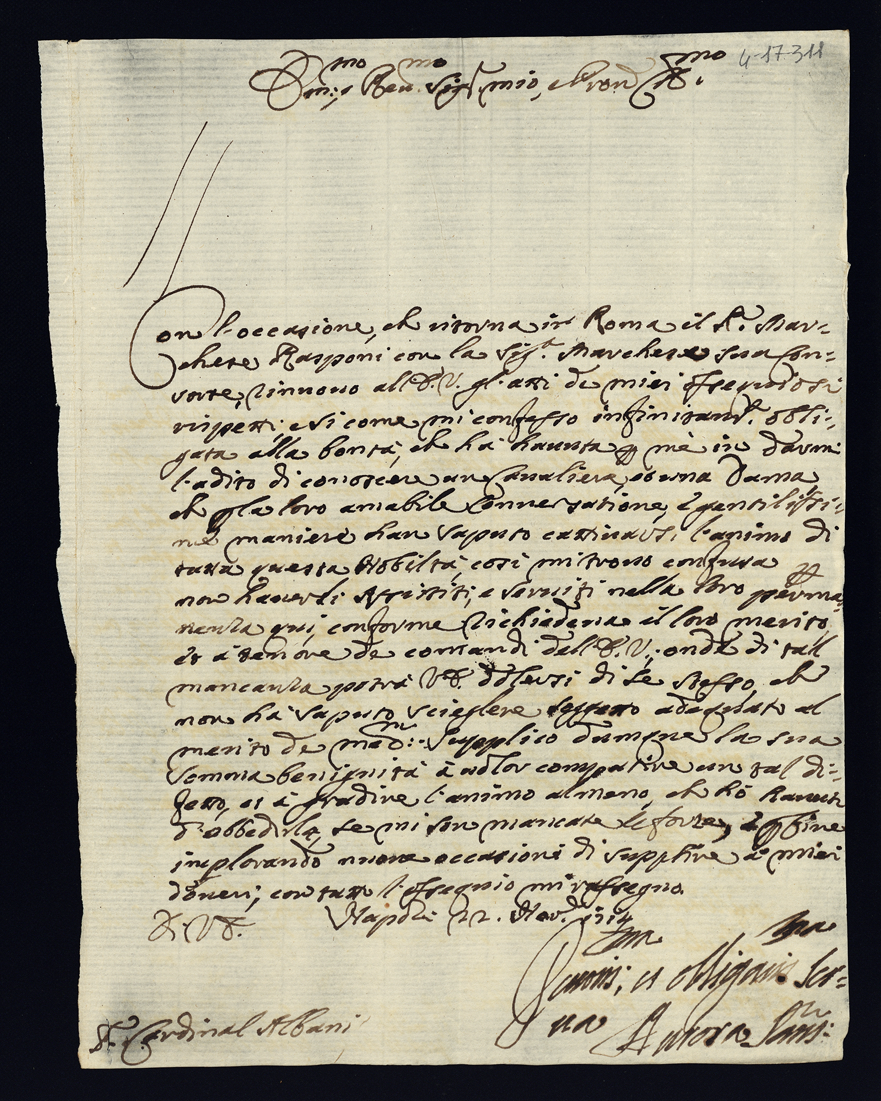 4-17-311
Em:mo, e Reu.mo Sig.r mio, e Pron Col.mo
Con l'occasione, che ritorna in Roma il S.r Mar=
chese Rasponi con la Sig.ra Marchesa sua Con=
sorte, rinnouo all'E.V. gl'atti de miei ossequiosi
rispetti; e si come mi confesso infinitam.te obli=
gata alla bontà, che hà hauuta p mè in darmi
l'adito di conoscere un Caualiere, et una Dama
che p la loro amabile Conuersatione, e gentilissi=
me maniere han saputo cattiuarsi l'animo di
tutta questa Nobiltà, così mi trouo confusa p
non hauerli assistiti, e seruiti nella loro perma=
nenza qui, conforme richiedeua il loro merito
et à tenore de comandi dell'E.V., onde di tal
mancanza potrà V.E. dolersi di se stesso, che
non hà saputo scieglere soggetto adequato al
merito de med:mi. Supplico dunque la sua
somma benignità à uoler compatire un tal di=
fetto, et à gradire l'animo almeno, che hò hauuto
d'obbedirla, se mi son mancate le forze, e p fine
implorando nuoue occasioni di supplire à miei
doueri, con tutto l'ossequio mi rassegno
Di V.E. Napoli 22. Nou.re 1714
Deuotis:ma, et obligatis:ma Ser=
ua
Aurora Sans:
S.r Cardinal Albani